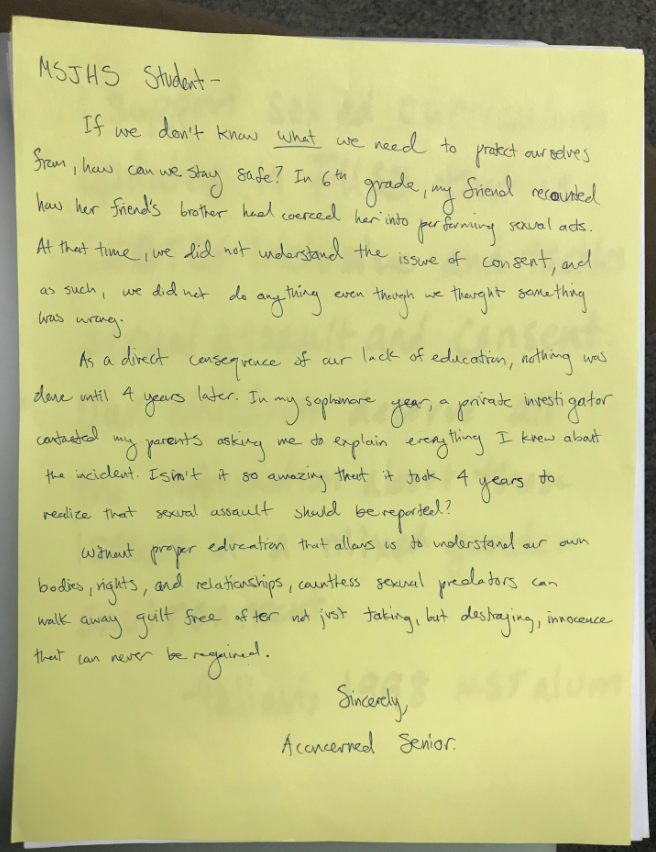 MSJHS Student -
If we don't know what we need to protect ourselves
from, how can we stay safe? In 6th grade, my friend recounted
how her friend's brother had coerced her into performing sexual acts.
At that time, we did not understand the issue of consent, and
as such, we did not do anything even though we thought something
was wrong.
As a direct consequence of our lack of education, nothing was
done until 4 years later. In my sophomore year, a private investigator
contacted my parents asking me to explain everything I knew about
the incident. Isn't it so amazing that it took 4 years to
realize that sexual assault should be reported?
Without proper education that allows us to understand our own
bodies, rights, and relationships, countless sexual predators can
walk away guilt free after not just taking, but destroying, innocence
that can never be regained.
Sincerely,
A concerned Senior.